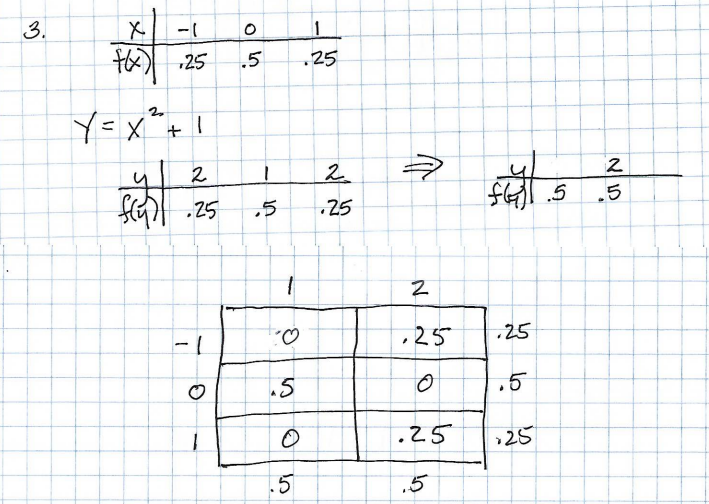 3.
x -1 0 1
f(x) .25 .5 .25
Y = X² + 1
y 2 1 2 ⇒ y 2
f(y) .25 .5 .25 f(y) .5 .5
1 2
-1 0 .25 .25
0 .5 0 .5
1 0 .25 .25
.5 .5